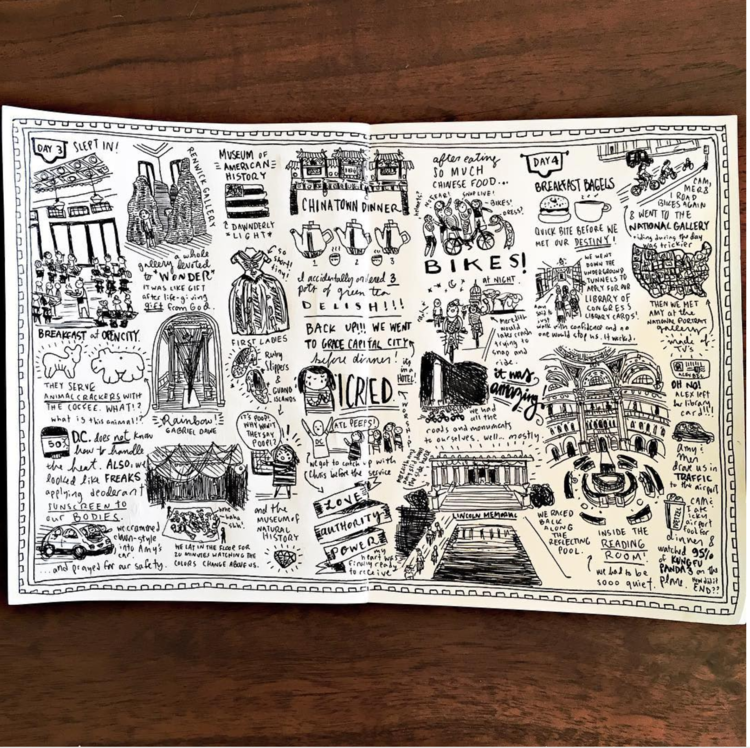 DAY 3
SLEPT IN!
BREAKFAST at OPEN CITY.
THEY SERVE
ANIMAL CRACKERS WITH
THE COFFEE. WHAT!?
what is this animal?
50%
DC. does not know
how to handle
the heat. ALSO, we
looked like FREAKS
applying deodorant
SUNSCREEN TO
our BODIES.
we crammed
clown-style
into Amy's
car.
...and prayed for our safety.
RENWICK GALLERY
gallery a whole
devoted
to "WONDER"
IT WAS LIKE GIFT
after life-giving
GIFT from God.
"Rainbow"
GABRIEL DAWE
WE LAY IN THE FLOOR FOR
20 MINUTES WATCHING THE
COLORS CHANGE ABOVE US.
MUSEUM OF
AMERICAN
HISTORY
DAWNDERLY
LIGHT
so
tiny!
FIRST LADIES
Ruby
Slippers
&
GUANO
ISLANDS
IT'S POOP!
WHY WON'T
THEY SAY
POOP!?
and the
MUSEUM OF
NATURAL
HISTORY
CHINATOWN DINNER
1 2 3
I accidentally ordered 3
pots of green tea
DELISH!!!
BACK UP!! WE WENT
TO GRACE CAPITAL CITY
before dinner!
I CRIED.
ATL PEEPS!
DC
we got to catch up with
before the service
LOVE
AUTHORITY
POWER
my
heart was
finally ready
to receive
in a
HOTEL!
after eating
SO MUCH
CHINESE FOOD...
BIKES!
DRESS!
BIKES!
AT NIGHT
Meredith
would
trying to
snap and
ride.
it was
amazing
we had
all the
roads and monuments
to ourselves. well... mostly.
LINCOLN MEMORIAL
WE RACED
BACK
ALONG
THE
REFLECTING
POOL.
DAY 4
BREAKFAST BAGELS
QUICK BITE BEFORE WE
MET OUR DESTINY!
WE WENT
DOWN THE
UNDERGROUND
TUNNELS TO
APPLY FOR OUR
LIBRARY OF
CONGRESS
LIBRARY CARDS!
walk with confidence and no
one would stop us. it worked.
INSIDE THE
READING
ROOM!
we had to be
sooo quiet.
CAM,
MER &
I ROAD
BIKES AGAIN
& WENT TO THE
NATIONAL GALLERY
riding during the day
was trickier
THEN WE MET
AMY at the
NATIONAL PORTRAIT
gallery
made of
TVs
OH NO!
ALEX left
her library
card!!!
Amy
then
drove us in
TRAFFIC
to the airport
PRETZEL
CAM &
I ate
airport
food for
dinner &
watched 95%
of KUNG FU
PANDA 3 on the
plane.
HOW did it
END??